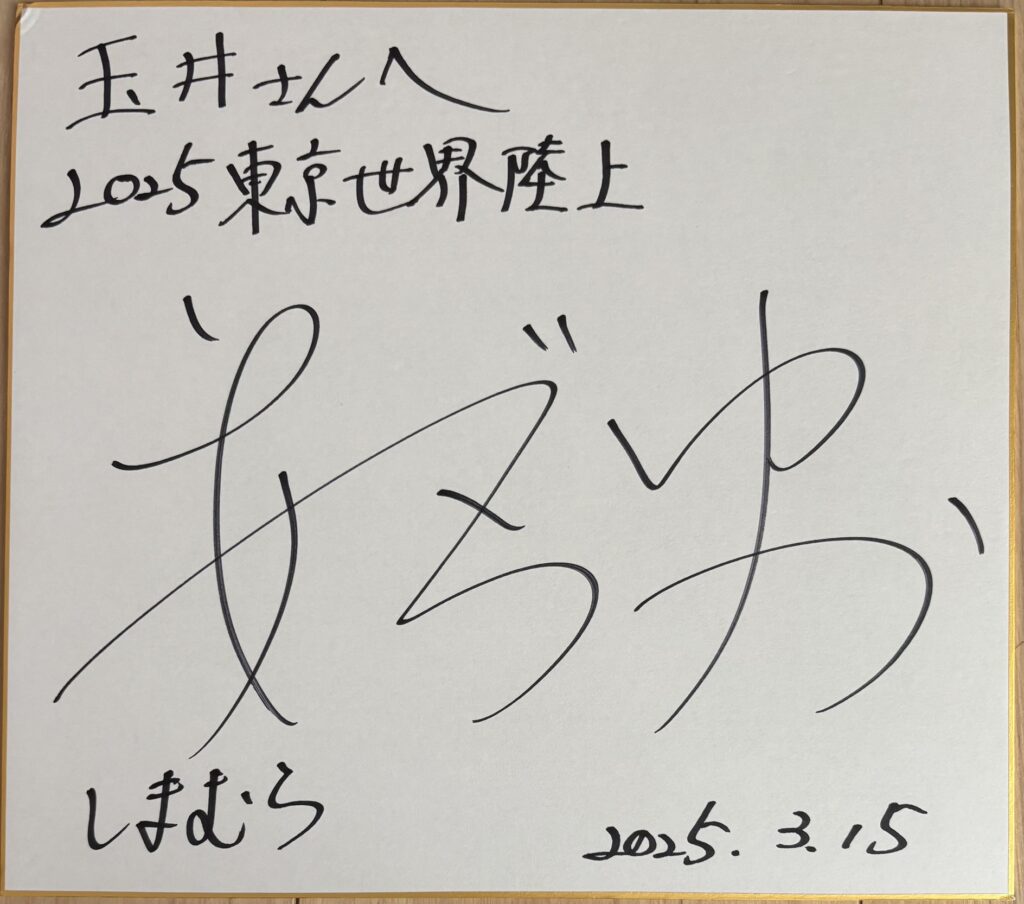 玉井さんへ
2025東京世界陸上
しまむら
2025.3.15